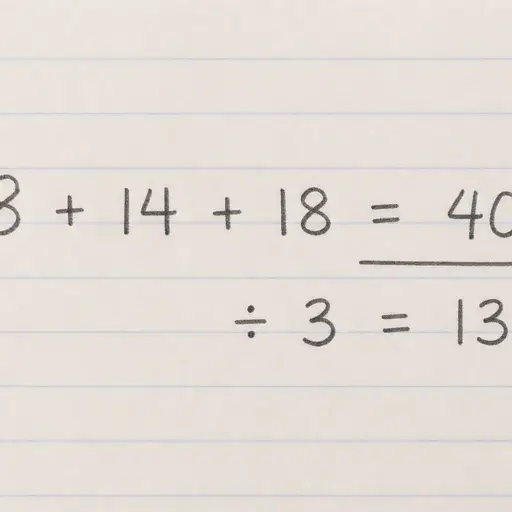 8 + 14 + 18 = 40
÷ 3 = 13